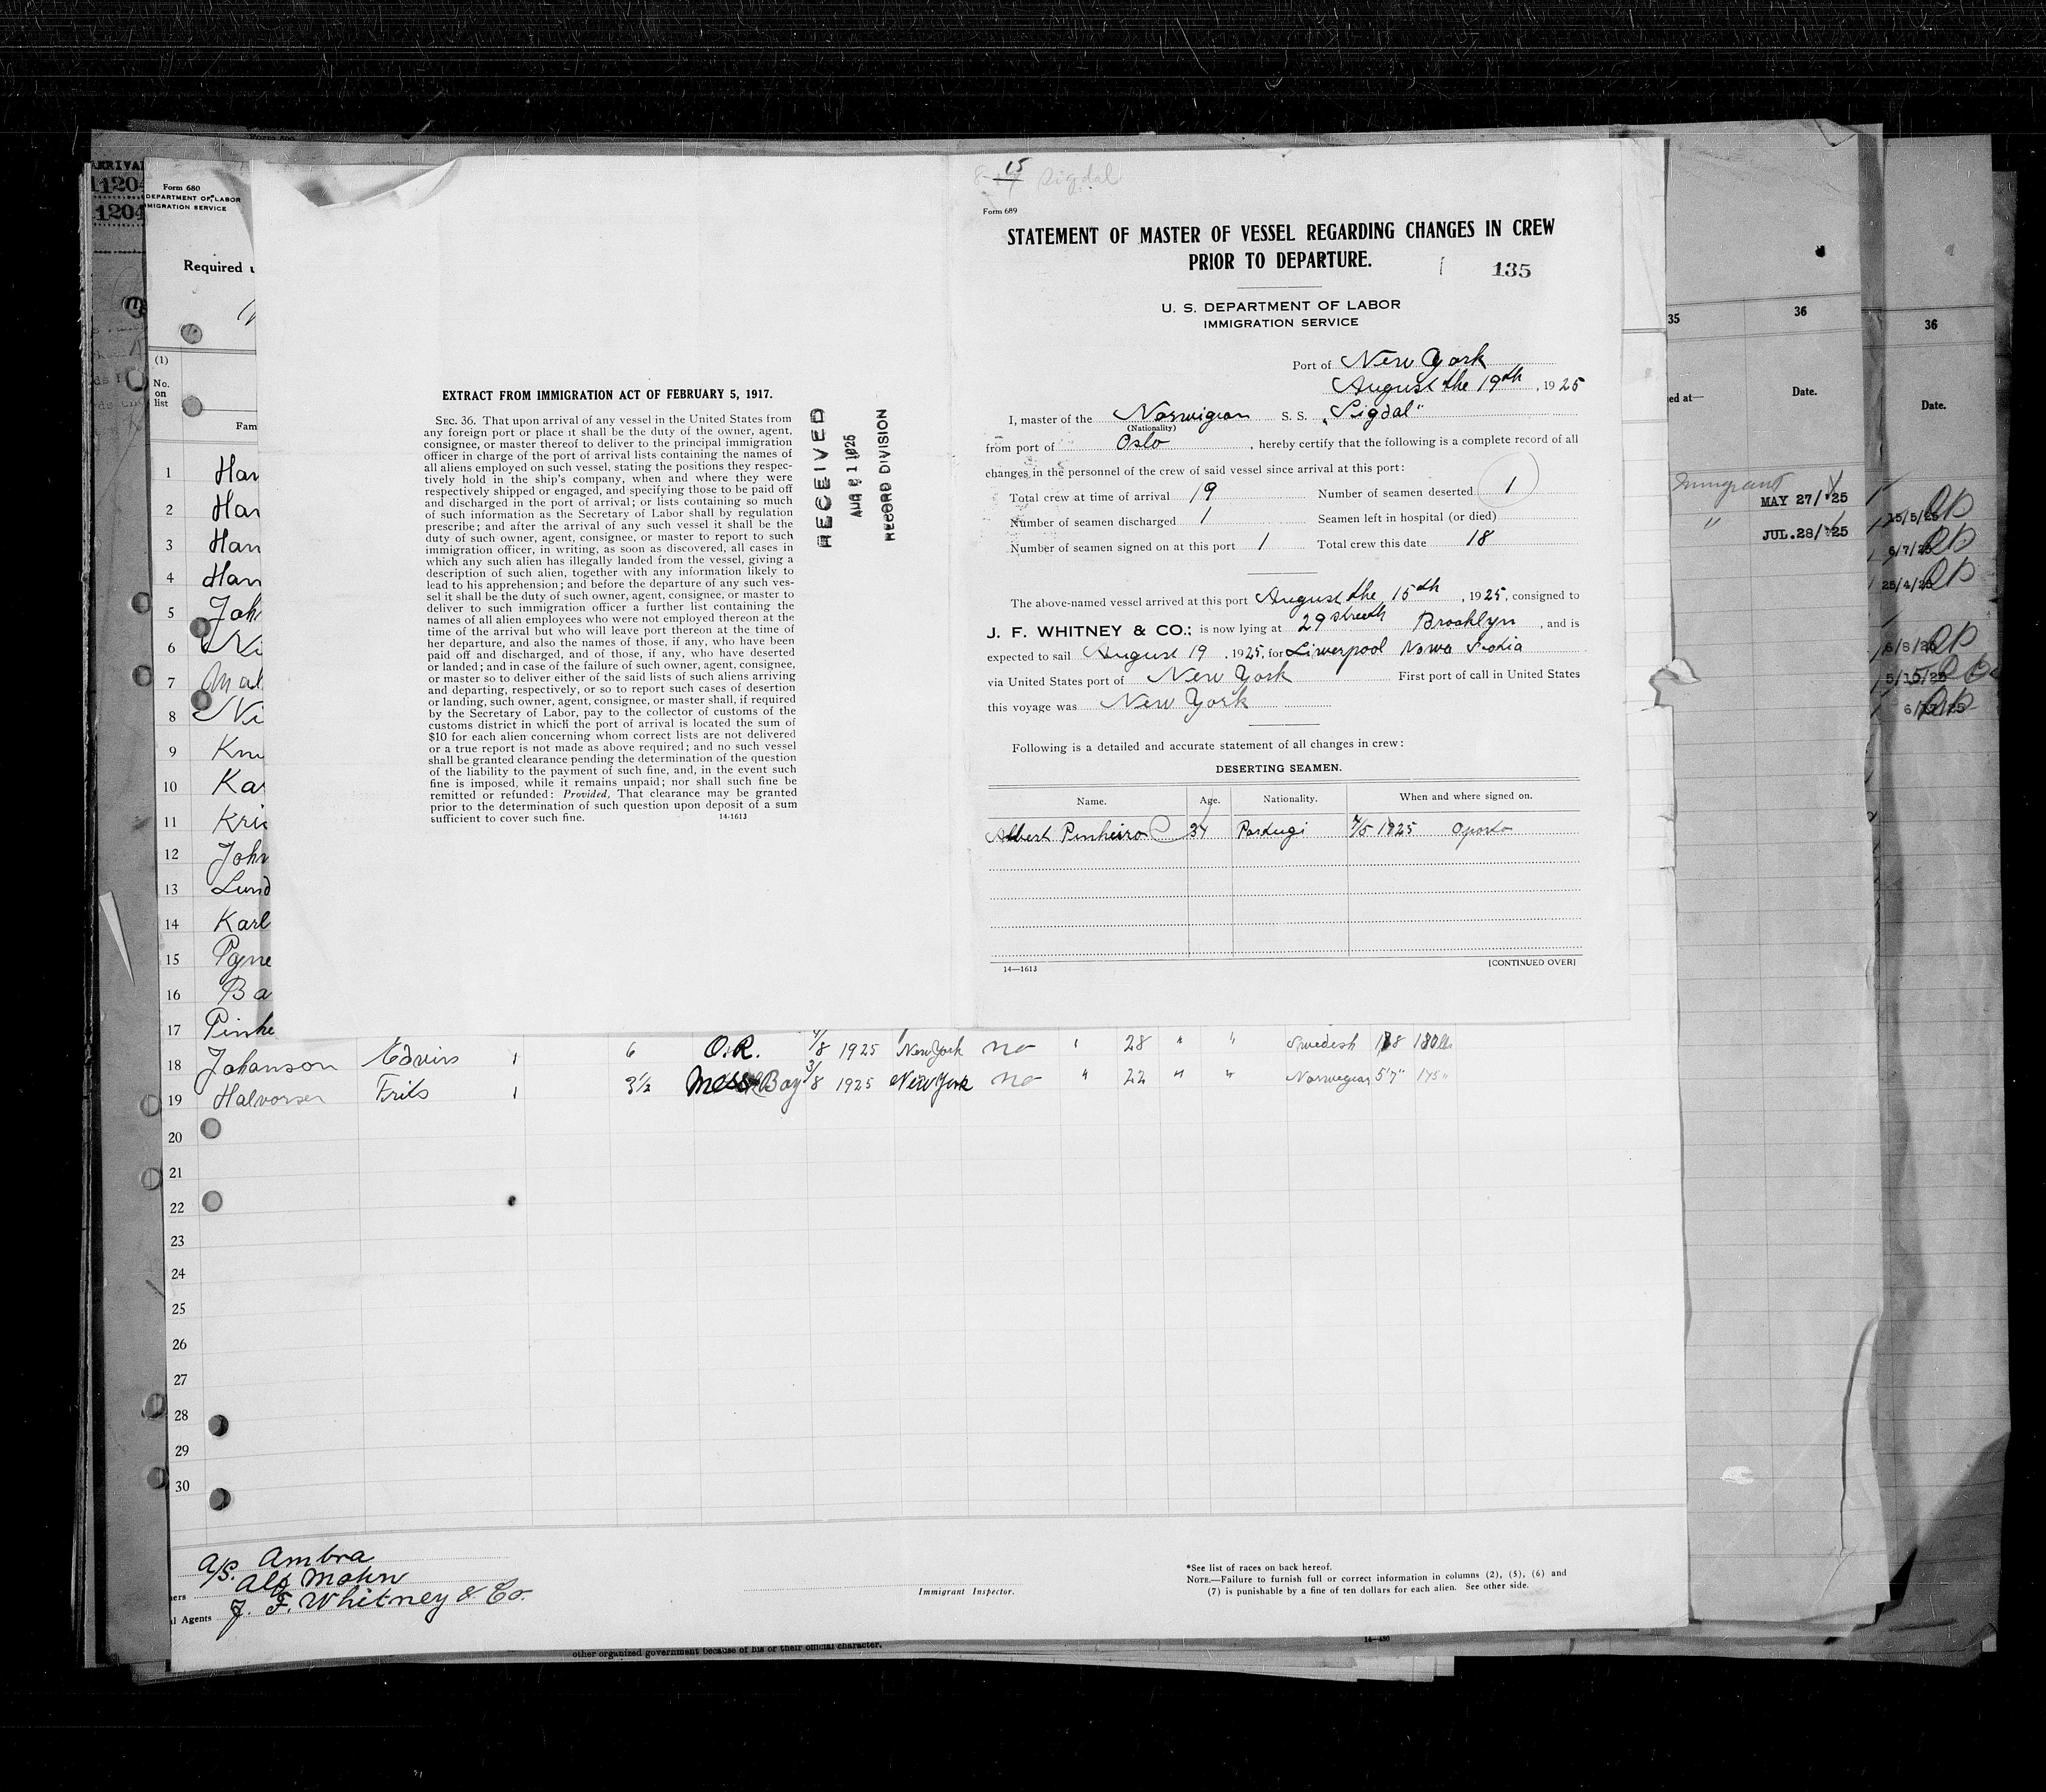 15
Sigdal
Form 689
STATEMENT OF MASTER OF VESSEL REGARDING CHANGES IN CREW
PRIOR TO DEPARTURE.
135
U. S. DEPARTMENT OF LABOR
IMMIGRATION SERVICE
Port of New York
August the 19th, 1925
I, master of the Norwigian S. S. „Sigdal"
(Nationality)
from port of Oslo, hereby certify that the following is a complete record of all
changes in the personnel of the crew of said vessel since arrival at this port:
Total crew at time of arrival 19 Number of seamen deserted 1
Number of seamen discharged 1 Seamen left in hospital (or died)
Number of seamen signed on at this port 1 Total crew this date 18
The above-named vessel arrived at this port August the 15th, 1925, consigned to
J. F. WHITNEY & CO.; is now lying at 29 streeth Brooklyn, and is
expected to sail August 19, 1925, for Liwerpool Nowa Skotia
via United States port of New York First port of call in United States
this voyage was New York
Following is a detailed and accurate statement of all changes in crew:
DESERTING SEAMEN.
Name. Age. Nationality. When and where signed on.
Albert Pinheiro 34 Portugi 1925 Oporto
14—1613 [CONTINUED OVER]
EXTRACT FROM IMMIGRATION ACT OF FEBRUARY 5, 1917.
SEC. 36. That upon arrival of any vessel in the United States from
any foreign port or place it shall be the duty of the owner, agent,
consignee, or master thereof to deliver to the principal immigration
officer in charge of the port of arrival lists containing the names of
all aliens employed on such vessel, stating the positions they respec-
tively hold in the ship's company, when and where they were
respectively shipped or engaged, and specifying those to be paid off
and discharged in the port of arrival; or lists containing so much
of such information as the Secretary of Labor shall by regulation
prescribe; and after the arrival of any such vessel it shall be the
duty of such owner, agent, consignee, or master to report to such
immigration officer, in writing, as soon as discovered, all cases in
which any such alien has illegally landed from the vessel, giving a
description of such alien, together with any information likely to
lead to his apprehension; and before the departure of any such ves-
sel it shall be the duty of such owner, agent, consignee, or master to
deliver to such immigration officer a further list containing the
names of all alien employees who were not employed thereon at the
time of the arrival but who will leave port thereon at the time of
her departure, and also the names of those, if any, who have been
paid off and discharged, and of those, if any, who have deserted
or landed; and in case of the failure of such owner, agent, consignee,
or master so to deliver either of the said lists of such aliens arriving
and departing, respectively, or so to report such cases of desertion
or landing, such owner, agent, consignee, or master shall, if required
by the Secretary of Labor, pay to the collector of customs of the
customs district in which the port of arrival is located the sum of
$10 for each alien concerning whom correct lists are not delivered
or a true report is not made as above required; and no such vessel
shall be granted clearance pending the determination of the question
of the liability to the payment of such fine, and, in the event such
fine is imposed, while it remains unpaid; nor shall such fine be
remitted or refunded: Provided, That clearance may be granted
prior to the determination of such question upon deposit of a sum
sufficient to cover such fine.
14-1613
RECEIVED
AUG 21 1925
RECORD DIVISION
ARRIVA
1120
1204
Form 680
DEPARTMENT OF LABOR
IMMIGRATION SERVICE
Required u
(1)
No.
on
list
Fam
1 Han
2 Han
3 Han
4 Han
5 Joh
6 Ni
7 Mal
8 Ni
9 Knu
10 Kar
11 Kri
12 Joh
13 Lund
14 Karl
15 Payne
16 Ba
17 Pinhe
18 Johanson Edvin 1 6 O.R. 4/8 1925 New York no " 28 " " Swedish 180 lb
19 Halvorsen Frits 1 3½ Mess Boy 3/8 1925 New York no " 22 " " Norwegian 5'7" 145 "
20
21
22
23
24
25
26
27
28
29
30
A/S. Ambra
Alf Mohn
J. F. Whitney & Co.
ners
l Agents
Immigrant Inspector.
*See list of races on back hereof.
NOTE.—Failure to furnish full or correct information in columns (2), (5), (6) and
(7) is punishable by a fine of ten dollars for each alien. See other side.
other organized government because of his or their official character.
14—480
35 36
ed at— Date.
Immigrant MAY 27/25
" JUL. 28/25
36
Date.
15/5/25
6/7/25
25/4/25
6/6/25
5/15/25